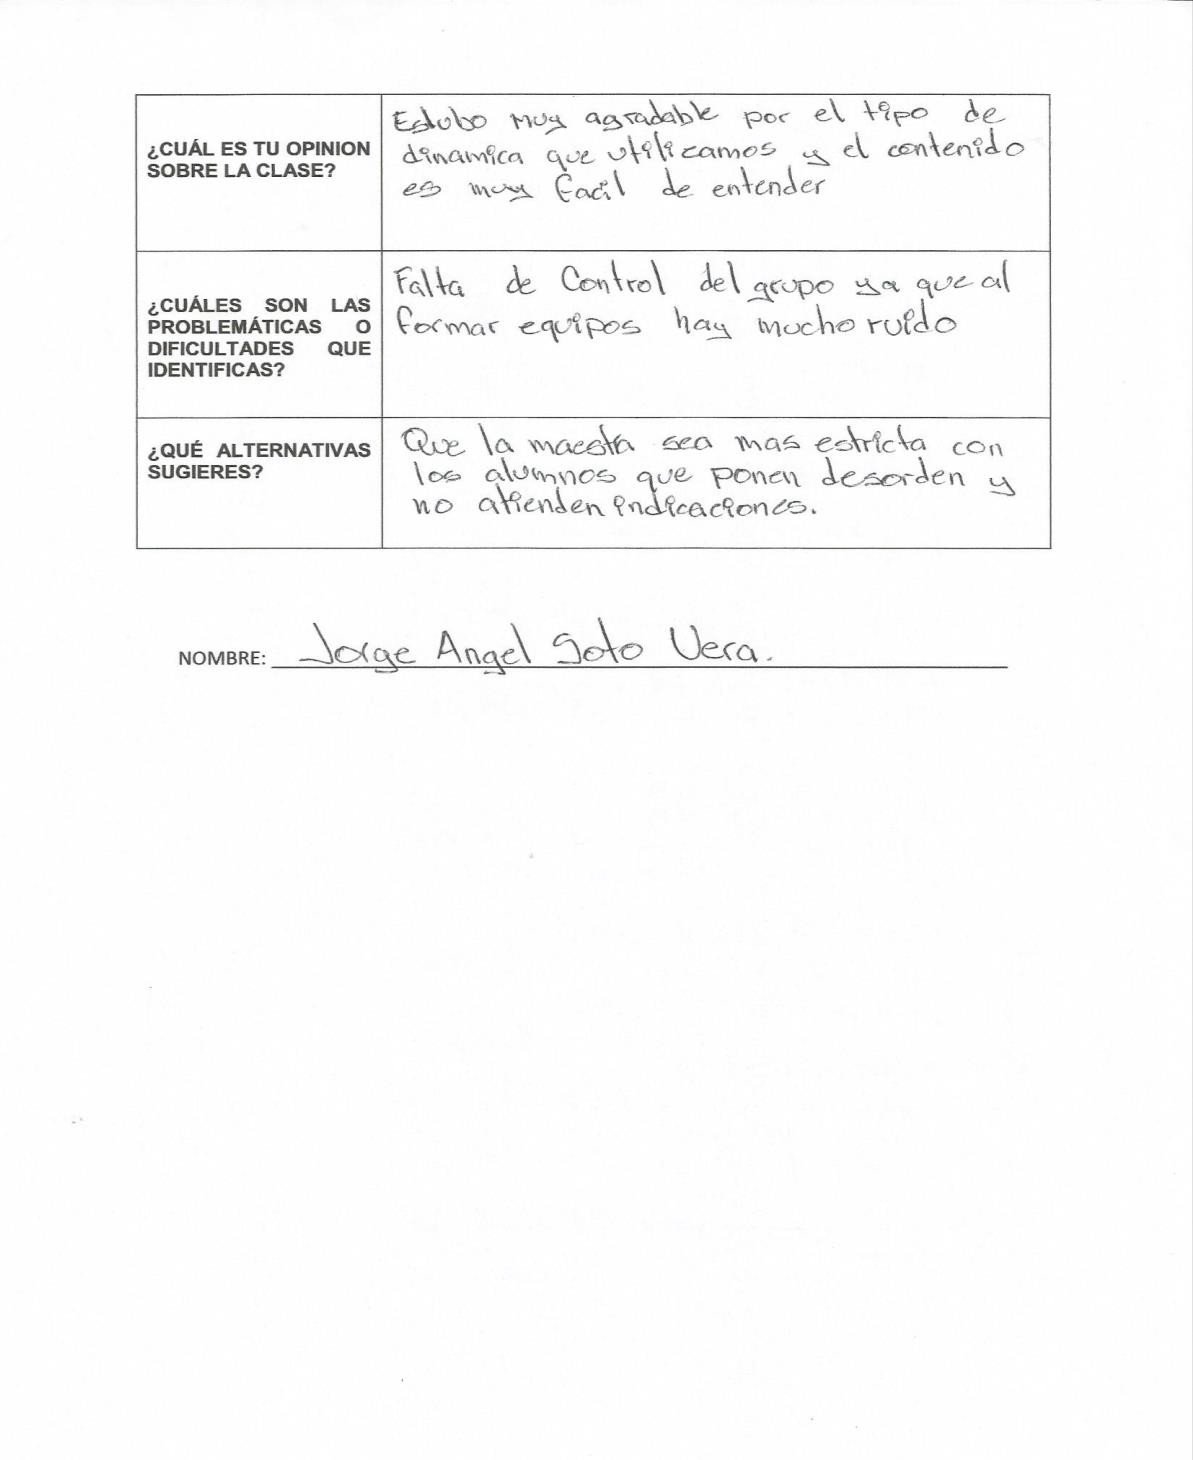 ¿CUÁL ES TU OPINION
SOBRE LA CLASE?
Estubo muy agradable por el tipo de
dinamica que utilizamos y el contenido
es muy facil de entender
¿CUÁLES SON LAS
PROBLEMÁTICAS O
DIFICULTADES QUE
IDENTIFICAS?
Falta de Control del grupo ya que al
formar equipos hay mucho ruido
¿QUÉ ALTERNATIVAS
SUGIERES?
Que la maestra sea mas estricta con
los alumnos que ponen desorden y
no atienden indicaciones.
NOMBRE: Jorge Angel Soto Vera.